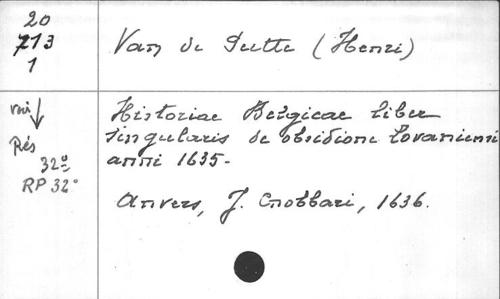 20
713
1
Van de Putte (Henri)
voir
Rés
32º
RP 32º
Historiae Belgicae liber
singularis de obsidione Lovaniensi
anni 1635-
Anvers, J. Cnobbari, 1636.